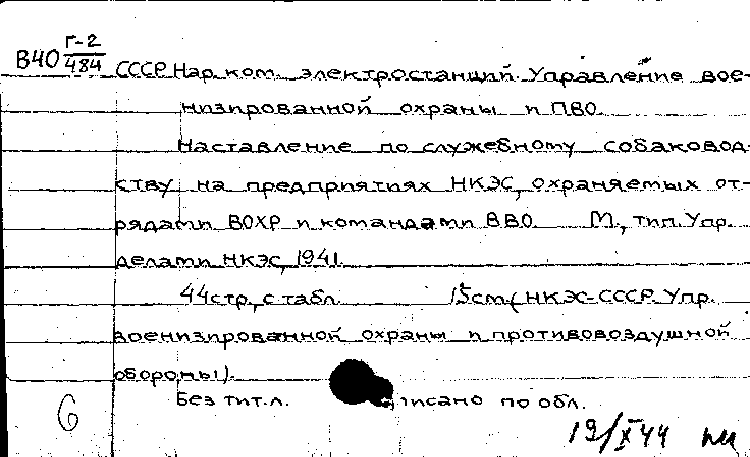 В40 Г-2/484
СССР. Нар. ком. электростанций. Управление вое-
низированной охраны и ПВО.
Наставление по служебному собаковод-
ству на предприятиях НКЭС, охраняемых от-
рядами ВОХР и командами ВВО. М., тип. Упр.
делами НКЭС, 1941.
44 стр., с табл. 15 см (НКЭС-СССР. Упр.
военизированной охраны и противовоздушной
обороны).
Без тит. л. по обл.
6
19/X 44